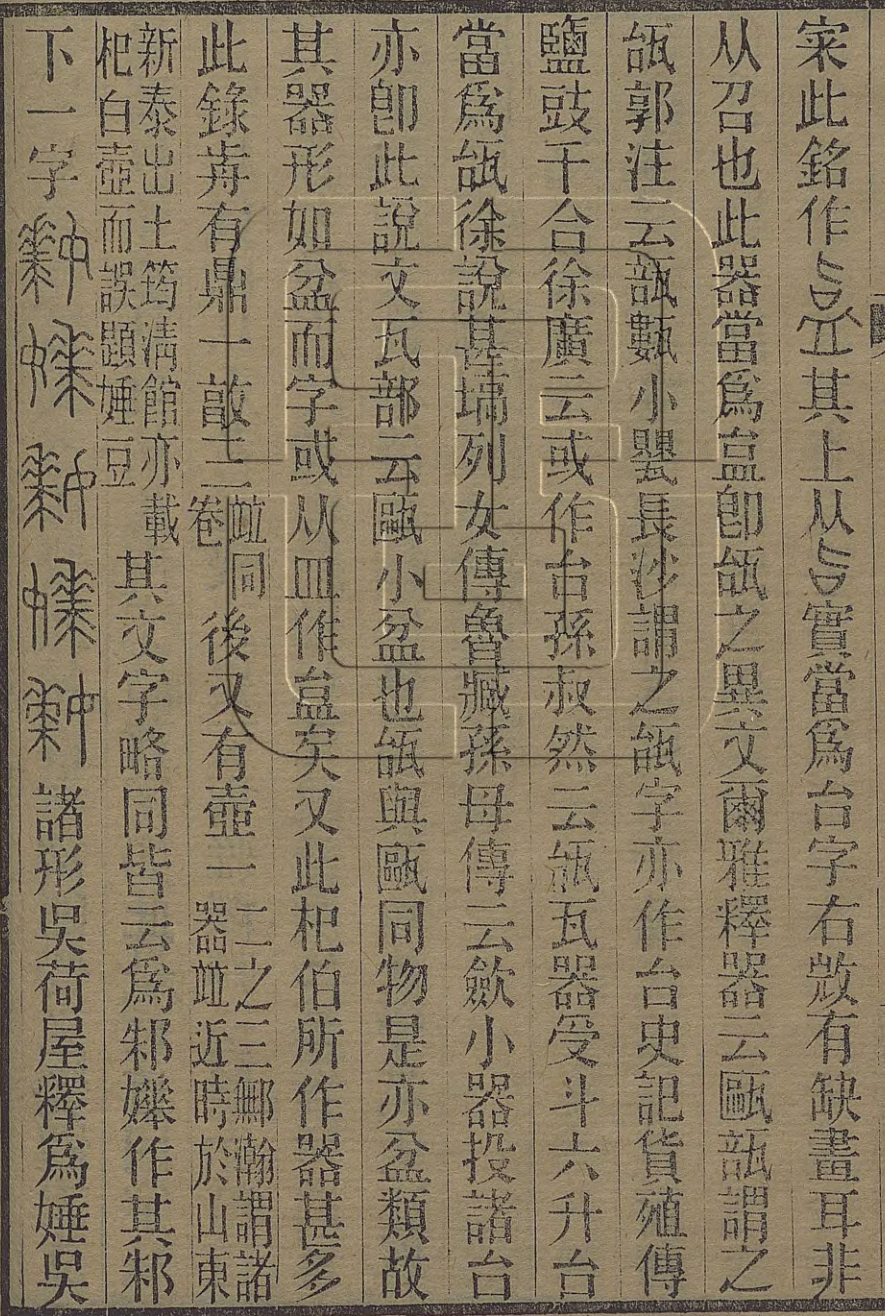 寀此銘作其上从實當爲台字右㪚有缺畫耳非
从召也此器當爲㿽卽瓵之異文爾雅釋器云甌瓿謂之
瓵郭注云瓿甊小罌長沙謂之瓵字亦作台史記貨殖傳
鹽豉千合徐廣云或作台孫叔然云瓵瓦器受斗六升台
當爲瓵徐說甚塙列女傳魯臧孫母傳云斂小器投諸台
亦卽此說文瓦部云甌小盆也瓵與甌同物是亦盆類故
其器形如盆而字或从皿作㿽矣又此杞伯所作器甚多
此錄前有鼎一敦三竝同卷後又有壺一二之三鄦瀚謂諸器竝近時於山東
新泰出土筠淸館亦載杞白壺而誤題㛗豆其文字略同皆云爲邾㜏作其邾
下一字諸形吳荷屋釋爲㛗吳